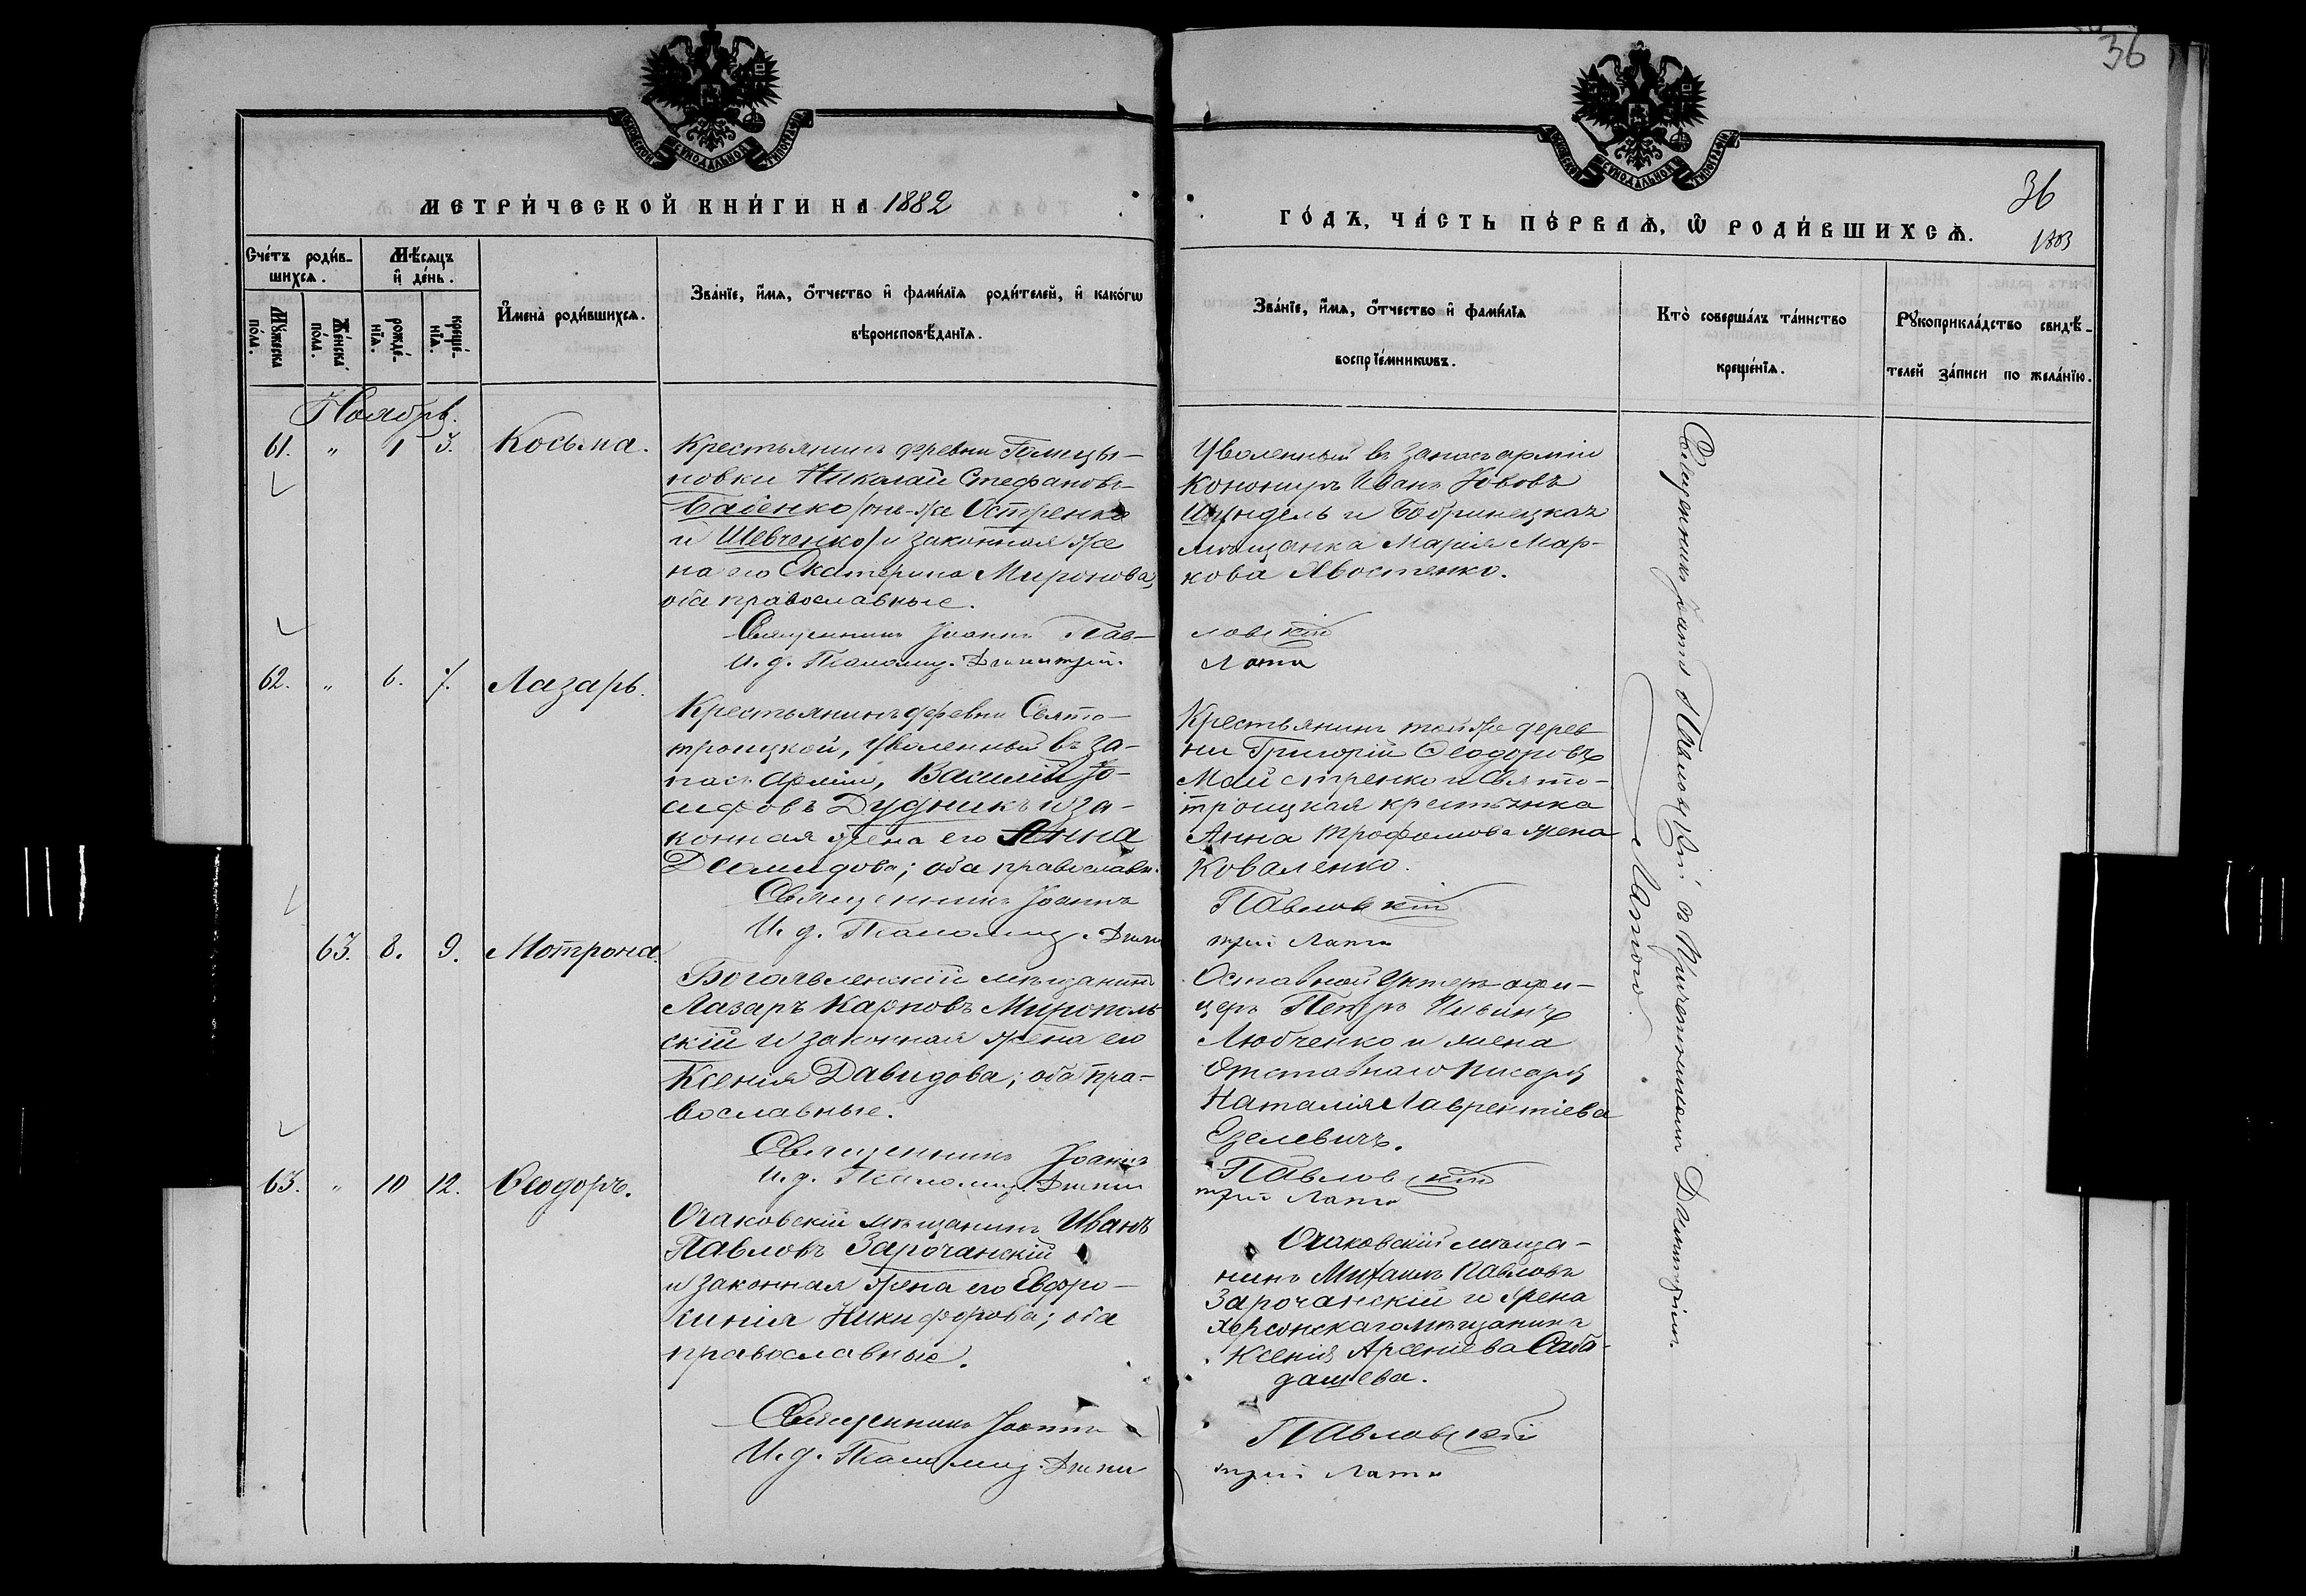 36
МЕТРИ́ЧЕСКОЙ КНИ́ГИ НА 1882
ГО́ДЪ, ЧА́СТЬ ПЕ́РВАѦ, Ѡ҆ РОДИ́ВШИХСѦ.
36
1803
Сче́тъ роди́в-
шихсѧ.
Мѣ́сѧцъ
и҆ де́нь.
Мꙋ́жеска
по́ла.
Же́нска
по́ла.
рожде́-
нїѧ.
креще́-
нїѧ.
И҆мена̀ роди́вшихсѧ.
Зва́нїе, и҆́мѧ, ѻ҆́тчество и҆ фами́лїѧ роди́телей, и҆ како́гѡ
вѣроисповѣ́данїѧ.
Зва́нїе, и҆́мѧ, ѻ҆́тчество и҆ фами́лїѧ
воспрїе́мникѡвъ.
Кто̀ соверша́лъ та́инство
креще́нїѧ.
Рꙋкоприкла́дство свидѣ́-
телей за́писи по жела́нїю.
Ноябрь.
61. " 1 3. Косьма.
Крестьянинъ деревни Голицы-
новки Николай Стефановъ
Бабенко /онъ-же Остренко
и Шевченко/ и законная же
на его Екатерина Миронова,
оба православные.
Священникъ Іоаннъ Пав-
И. д. Псаломщ. Димитрій
Уволенный въ запасъ арміи
Канониръ Иванъ Іововъ
Шпындель и Бобринецкая
мѣщанка Марія Мар-
кова Хвостенко.
ловскій
Лата
62. " 6. 7. Лазарь.
Крестьянинъ деревни Свято-
троицкой, уволенный въ за-
пасъ арміи, Василій Іо-
сифовъ Дудникъ и за-
конная жена его Анна
Демидова; оба православн.
Священникъ Іоаннъ
И. д. Псаломщ. Дими
Крестьянинъ той же дерев
ни Григорій Ѳеодоровъ
Майстренко и Свято-
троицкая крестьянка
Анна Трофимова жена
Коваленко.
Павловскій
трій Лата
63. 8. 9. Мотрона.
Богоявленскій мѣщанинъ
Лазаръ Карповъ Мирополь
скій и законная жена его
Ксенія Давидова; оба пра-
вославные.
Священникъ Іоаннъ
И. д. Псаломщ. Дими
Оставной Унтеръ-офи-
церъ Петръ Ильинъ
Любченко и жена
Отставнаго писаря
Наталія Лаврентіева
Езелевичъ.
Павловскій
трій Лата
63. " 10 12. Ѳеодоръ.
Очаковскій мѣщанинъ Иванъ
Павловъ Зарочанскій
и законная жена его Евфро-
синія Никифорова; оба
православные.
Священникъ Іоаннъ
И. д. Псаломщ. Дими
Очаковскій мѣща-
нинъ Михаилъ Павловъ
Зарочанскій и жена
Херсонскаго мѣщанина
Ксенія Арсеніева Саба-
дашева.
Павловскій
трій Лата
Священникъ Іоаннъ Павловскій съ Причетникомъ Димитріемъ
Латою.